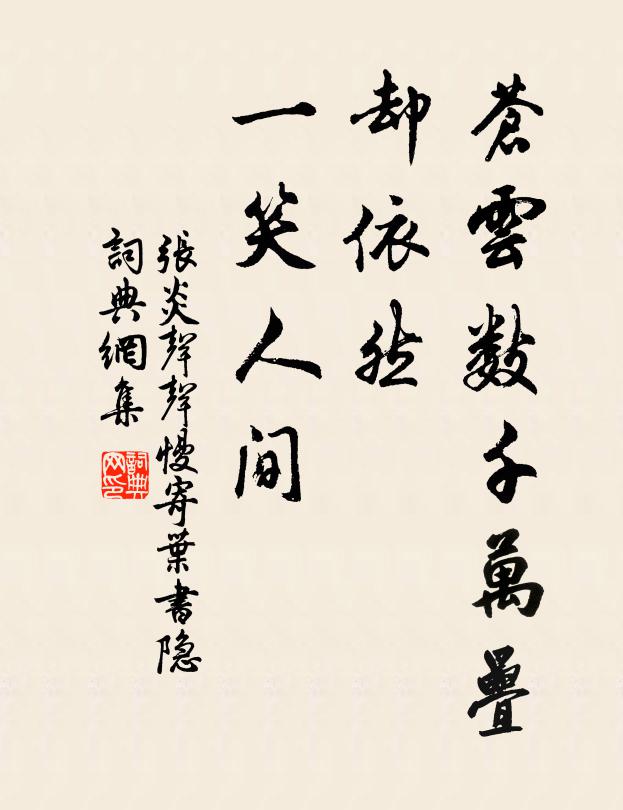 蒼雲數千萬疊
却依然
一笑人间
張炎聲聲慢寄葉書隐
詞典網集
詞典
网印